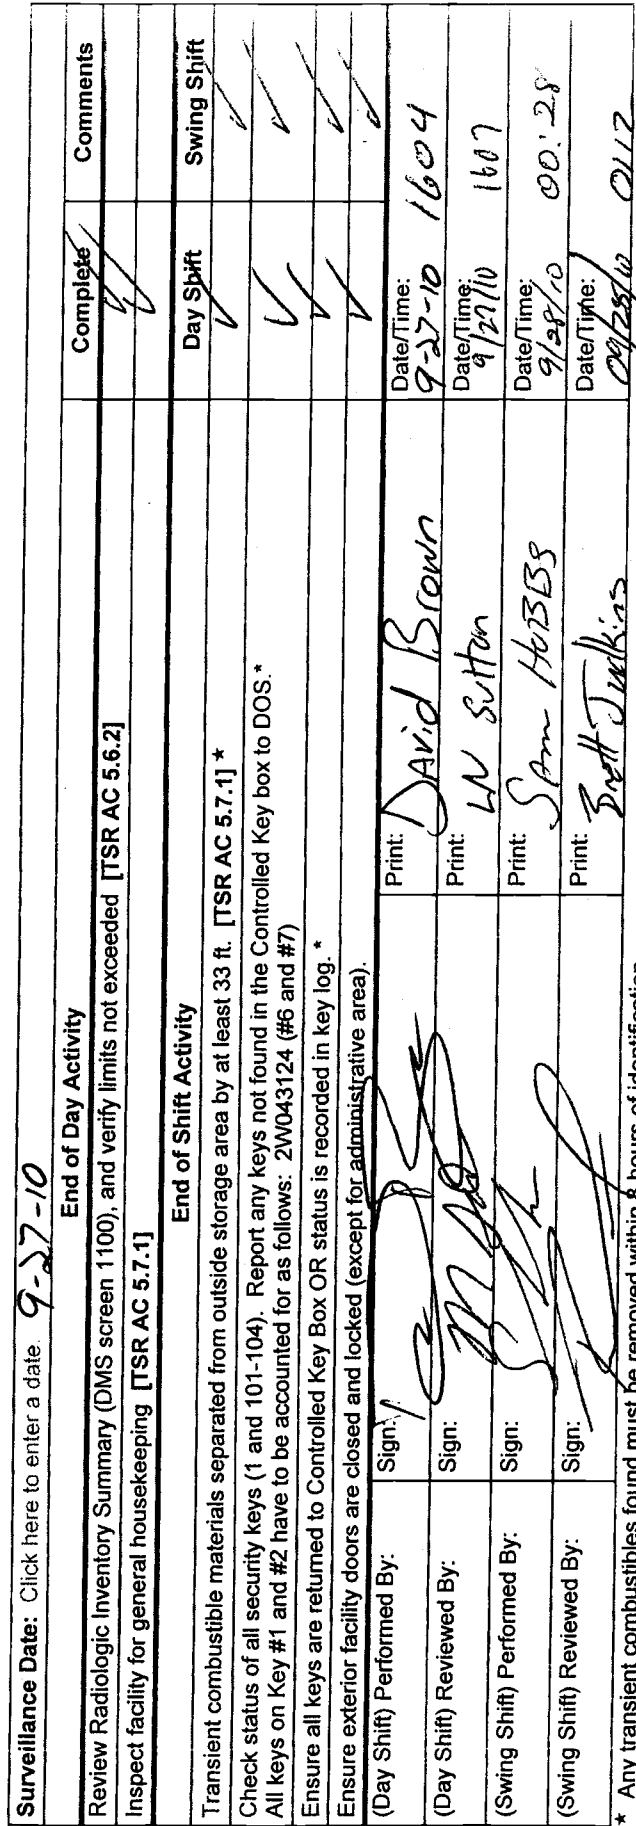 Surveillance Date: Click here to enter a date. 9-27-10
End of Day Activity Complete Comments
Review Radiologic Inventory Summary (DMS screen 1100), and verify limits not exceeded [TSR AC 5.6.2] ✓
Inspect facility for general housekeeping [TSR AC 5.7.1] ✓
End of Shift Activity Day Shift Swing Shift
Transient combustible materials separated from outside storage area by at least 33 ft. [TSR AC 5.7.1] * ✓ ✓
Check status of all security keys (1 and 101-104). Report any keys not found in the Controlled Key box to DOS.* ✓ ✓
All keys on Key #1 and #2 have to be accounted for as follows: 2W043124 (#6 and #7)
Ensure all keys are returned to Controlled Key Box OR status is recorded in key log. * ✓ ✓
Ensure exterior facility doors are closed and locked (except for administrative area). ✓ ✓
(Day Shift) Performed By: Sign: Print: David Brown Date/Time: 9-27-10 1604
(Day Shift) Reviewed By: Sign: Print: LN Sutton Date/Time: 9/27/10 1607
(Swing Shift) Performed By: Sign: Print: Sam HUBBS Date/Time: 9/28/10 00:28
(Swing Shift) Reviewed By: Sign: Print: Brett Judkins Date/Time: 09/28/10 0112
* Any transient combustibles found must be removed within 8 hours of identification